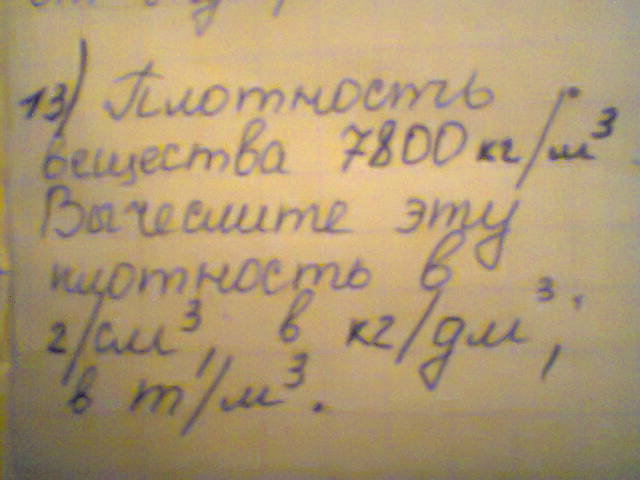 13) Плотность
вещества 7800 кг/м³.
Вычеслите эту
плотность в
г/см³, в кг/дм³;
в т/м³.